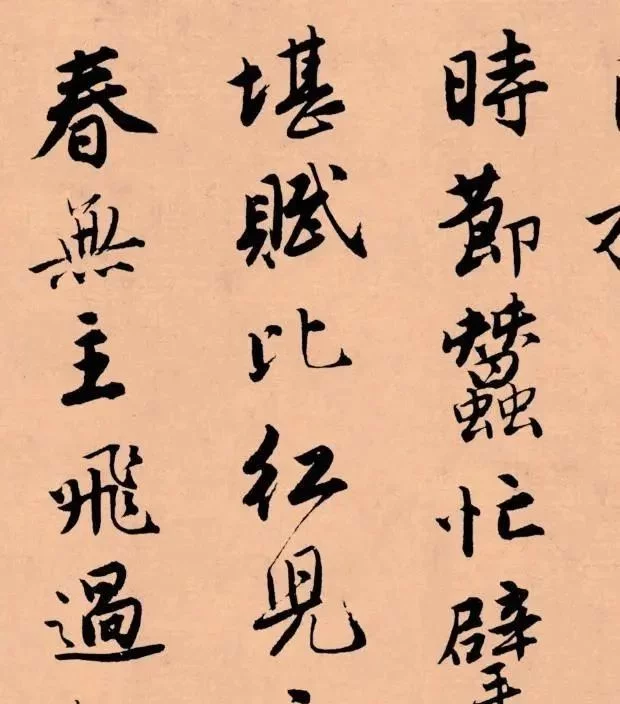 時節蠶忙擘
堪賦比紅兒
春無主飛過